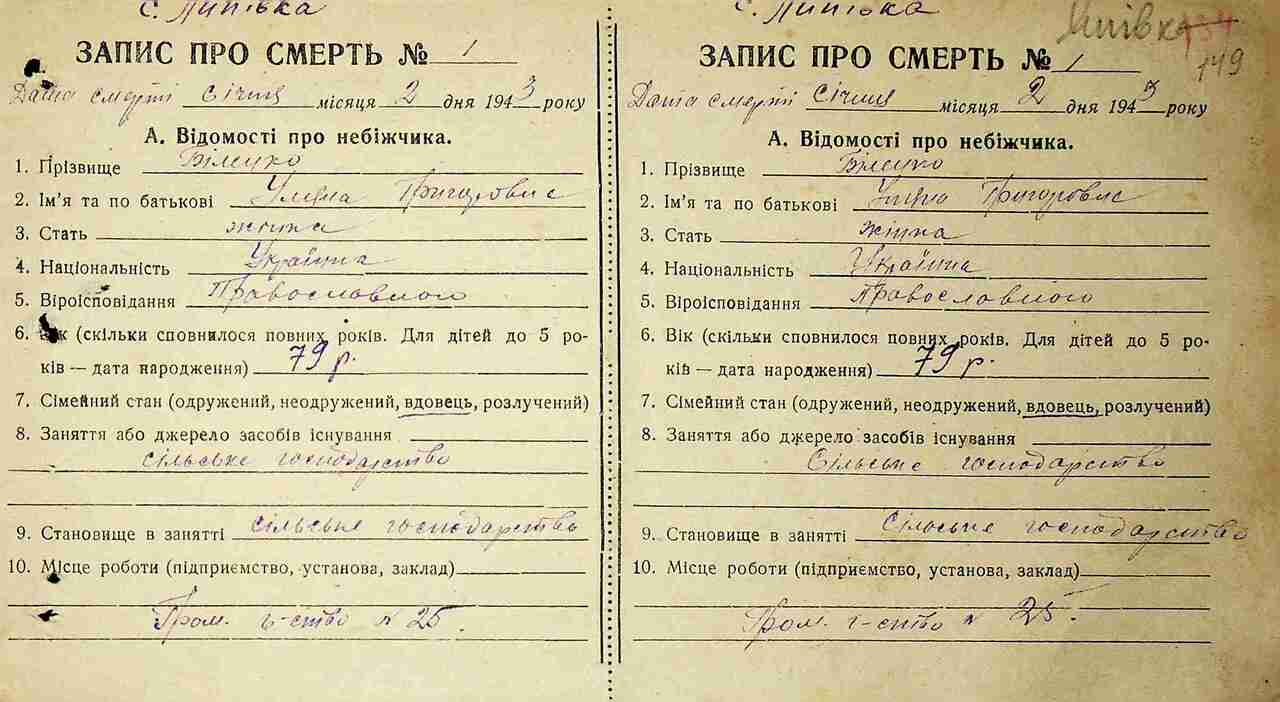 с. Липівка
ЗАПИС ПРО СМЕРТЬ № 1
Дата смерті січня місяця 2 дня 1943 року
А. Відомості про небіжчика.
1. Прізвище
2. Ім'я та по батькові Григоровис
3. Стать жінка
4. Національність Українка
5. Віроісповідання Православного
6. Вік (скільки сповнилося повних років. Для дітей до 5 ро-
ків — дата народження) 79 р.
7. Сімейний стан (одружений, неодружений, вдовець, розлучений)
8. Заняття або джерело засобів існування
сільське господарство
9. Становище в занятті сільське господарство
10. Місце роботи (підприємство, установа, заклад)
Гром. г-ство № 25.
с. Липівка
149
ЗАПИС ПРО СМЕРТЬ № 1
Дата смерті січня місяця 2 дня 1943 року
А. Відомості про небіжчика.
1. Прізвище
2. Ім'я та по батькові Григоровис
3. Стать жінка
4. Національність Українка
5. Віроісповідання Православного
6. Вік (скільки сповнилося повних років. Для дітей до 5 ро-
ків — дата народження) 79 р.
7. Сімейний стан (одружений, неодружений, вдовець, розлучений)
8. Заняття або джерело засобів існування
Сільське господарство
9. Становище в занятті Сільське господарство
10. Місце роботи (підприємство, установа, заклад)
Гром. г-ство № 25.